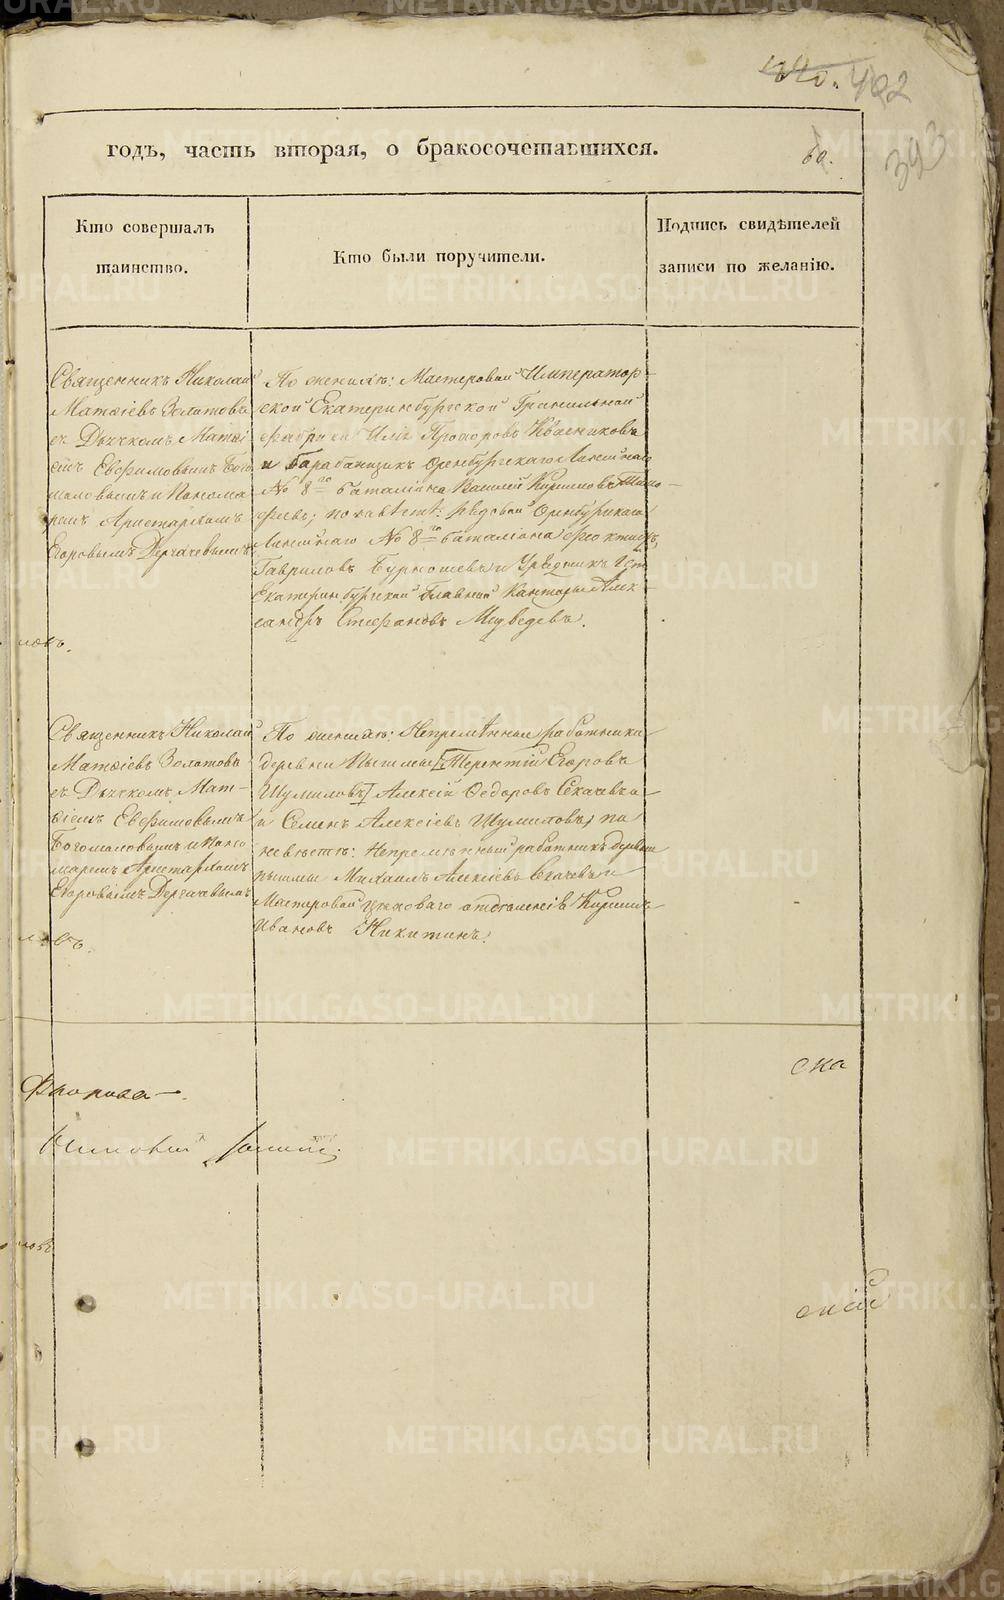 402
393
годъ, часть вторая, о бракосочетавшихся.
Кто совершалъ
таинство.
Кто были поручители.
Подпись свидѣтелей
записи по желанію.
Священникъ Николай
Матѳіевъ Золотовъ
съ Дьячкомъ Матѳі
емъ Евфимовымъ Бого
моловымъ и Понома
ремъ Аристархомъ
Егоровымъ Дергачевымъ
По женихѣ: Мастеровой Император-
ской Екатеринбургской Гранильной
фабрики Илія Прохоровъ Квасниковъ
и Барабанщикъ Оренбургскаго Линѣйнаго
№ 8го баталіона Василій Кириловъ Тимо-
феевъ; по невѣстѣ: рядовой Оренбургскаго
Линѣйнаго № 8го баталіона Феоктистъ
Гавриловъ Бурнышевъ и Урядникъ 1 ст
Екатеринбургской Главной Канторы Алек-
сандръ Стефановъ Медведевъ.
ловъ.
Священникъ Николай
Матѳіевъ Золотовъ
съ Дьячкомъ Мат-
ѳіемъ Евфимовымъ
Богомоловымъ и Поно
маремъ Аристархомъ
Егоровымъ Дергачевымъ
По женихѣ: Непремѣнные работники
деревни Пышмы Терентій Егоровъ
Шумиловъ Алексій Ѳедоровъ Секачевъ
и Семенъ Алексіевъ Шумиловъ, по
невѣстѣ: Непремѣнный работникъ деревни
Пышмы Михаилъ Алексіевъ Секачевъ и
Мастеровой цеховаго отдѣленія
Ивановъ Никитинъ.
ловъ.
ска
METRIKI.GASO-URAL.RU